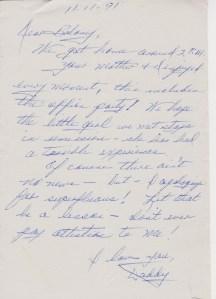 11-11-91
Dear
We got home around 2 P.M.
Your mother & I enjoyed
every moment, this includes
the office party! We hope
the little girl we met stays
in — she has had
a terrible experience.
Of course there ain't
no news — but — I apologize
for superfluous! Let that
be a lesson — don't ever
pay attention to me!
I love you,
Daddy